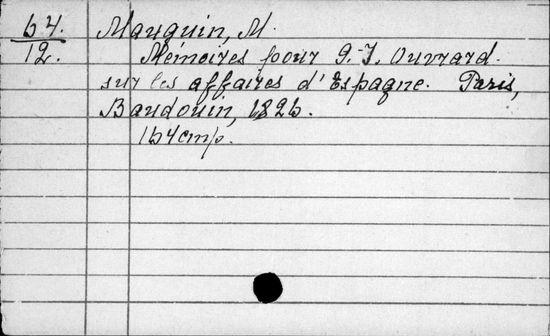 64.
12.
Mauguin, M.
Mémoires pour G.-J. Ouvrard
sur les affaires d'Espagne. Paris,
Baudouin, 1826.
164 cmp.